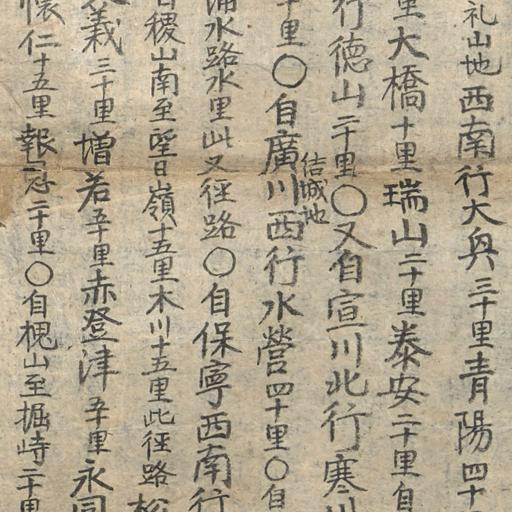 礼山地西南行大興三十里青陽四十
里大橋十里瑞山二十里泰安二十里自
行德山二十里○又自宣川北行寒川
十里○自廣川結城地西行水營四十里○自
浦水路水里此又徑路○自保寧西南行
稷山南至望日嶺十五里木川十五里此徑路
義三十里增若五十里赤登津五十里永同
懷仁十五里報恩二十里○自槐山至堀峙二十里